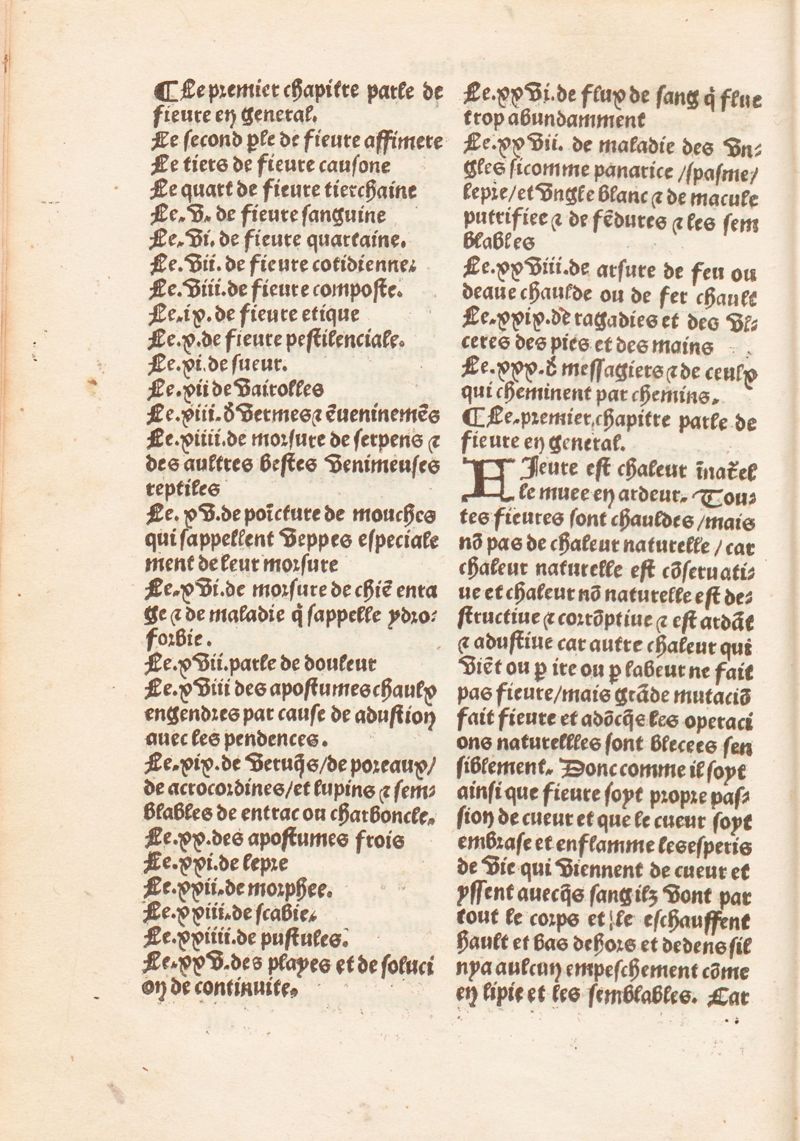 ¶Le premier chapitre parle de
fieure en general.
Le second ꝑle de fieure affimere
Le tiers de fieure causone
Le quart de fieure tierchaine
Le.v. de fieure sanguine
Le.vi. de fieure quartaine.
Le.vii. de fieure cotidienne.
Le.viii. de fieure composte.
Le.ix. de fieure etique
Le.x. de fieure pestilenciale.
Le.xi. de sueur.
Le.xii de vairolles
Le.xiii. ð vermes ⁊ ẽueninemẽs
Le.xiiii. de morsure de serpens ⁊
des aultres bestes venimeuses
reptiles
Le. xv. de poīcture de mouches
qui sappellent veppes especiale
ment de leur morsure
Le.xvi. de morsure de chiẽ enra
ge ⁊ de maladie q̄ sappelle ydro⸗
forbie.
Le.xvii. parle de douleur
Le.xviii des apostumes chaulx
engendres par cause de adustion
auec les pendences.
Le.xix. de veruq̄s/de poreaux/
de acrocordines/et lupins ⁊ sem⸗
blables de entrac ou charboncle.
Le.xx. des apostumes frois
Le.xxi. de lepre
Le.xxii. de morphee.
Le.xxiii. de scabie.
Le.xxiiii. de pustules.
Le.xxv. des playes et de soluci
on de continuite.
Le.xxvi. de flux de sang q̄ flue
trop abundamment
Le.xxvii. de maladie des vn⸗
gles sicomme panarice/spasme/
lepre/et vngle blanc ⁊ de macule
putrifiee ⁊ de fẽdures ⁊ les sem
blables
Le.xxviii. de arsure de feu ou
deaue chaulde ou de fer chault
Le.xxix. de ragadies et des vl⸗
ceres des pies et des mains
Le.xxx. ð messagiers ⁊ de ceulx
qui cheminent par chemins.
¶Le premier chapitre parle de
fieure en general.
FIeure est chaleur īnatẽl
le muee en ardeur. Tou⸗
tes fieures sont chauldes/mais
nõ pas de chaleur naturelle/car
chaleur naturelle est cõseruati⸗
ue et chaleur nõ naturelle est de⸗
structiue ⁊ corrõptiue ⁊ est ardãt
⁊ adustiue car autre chaleur qui
viẽt ou ꝑ ire ou ꝑ labeur ne fait
pas fieure/mais grãde mutaciõ
fait fieure et adõcq̄s les operaci
ons naturellles sont blecees sen
siblement. Donc comme il soyt
ainsi que fieure soyt propre pas⸗
sion de cueur et que le cueur soyt
embrase et enflamme lesesperis
de vie qui viennent de cueur et
yssent auecq̄s sang ilz vont par
tout le corps et le eschauffent
hault et bas dehors et dedens sil
nya aulcun empeschement cõme
en lipie et les semblables. Car